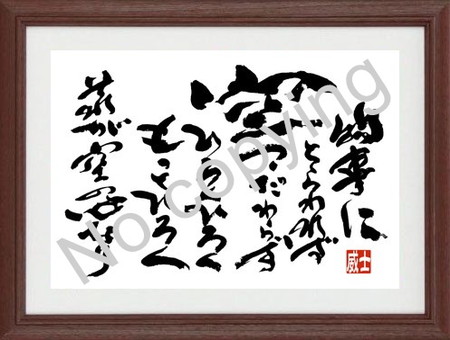 物事に
とらわれず
空
こだわらず
ひろくひろく
もっとひろく
が空の心なり
威士
No copying